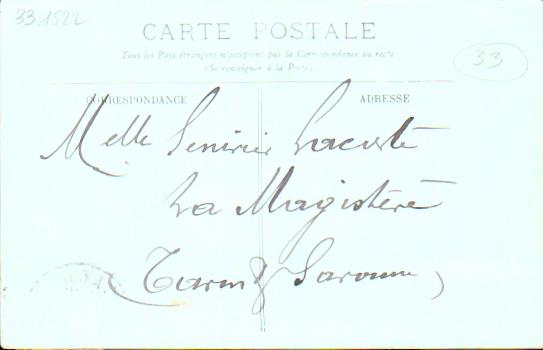 33 1522
CARTE POSTALE
Tous les Pays étrangers n'acceptent pas la Correspondance au recto
(Se renseigner à la Poste).
33
CORRESPONDANCE
ADRESSE
Melle Lacoste
La Magistère
(Tarn & Garonne)